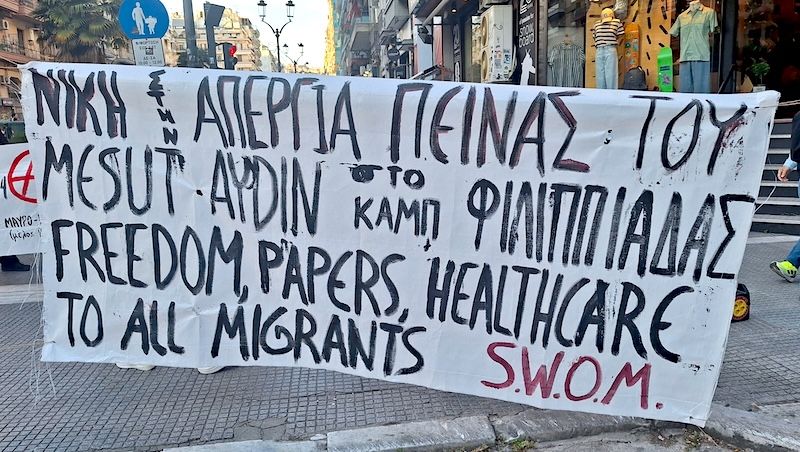 ΝΙΚΗ ΣΤΗΝ ΑΠΕΡΓΙΑ ΠΕΙΝΑΣ ΤΟΥ
MESUT AYDIN ΣΤΟ ΚΑΜΠ ΦΙΛΙΠΠΙΑΔΑΣ
FREEDOM, PAPERS, HEALTHCARE
TO ALL MIGRANTS S.W.O.M.
ΜΑΥΡΟ-